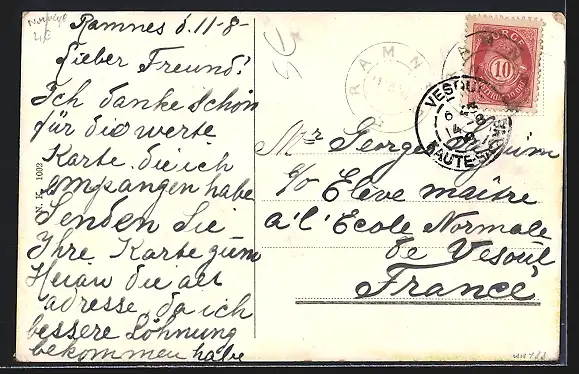 Norwege
Ramnes d. 11-8-
Lieber Freund!
Ich danke schön
für die werte
Karte die ich
empfangen habe
Senden Sie
Ihre Karte zum
die alt
adresse, da ich
bessere Löhnung
bekommen habe
N. K. 1002
RAMN
NORGE
10
VESOUL
HAUTE-SAÔNE
Mr George
c/o Elève maître
a'l'Ecole Normale
de Vesoul
France